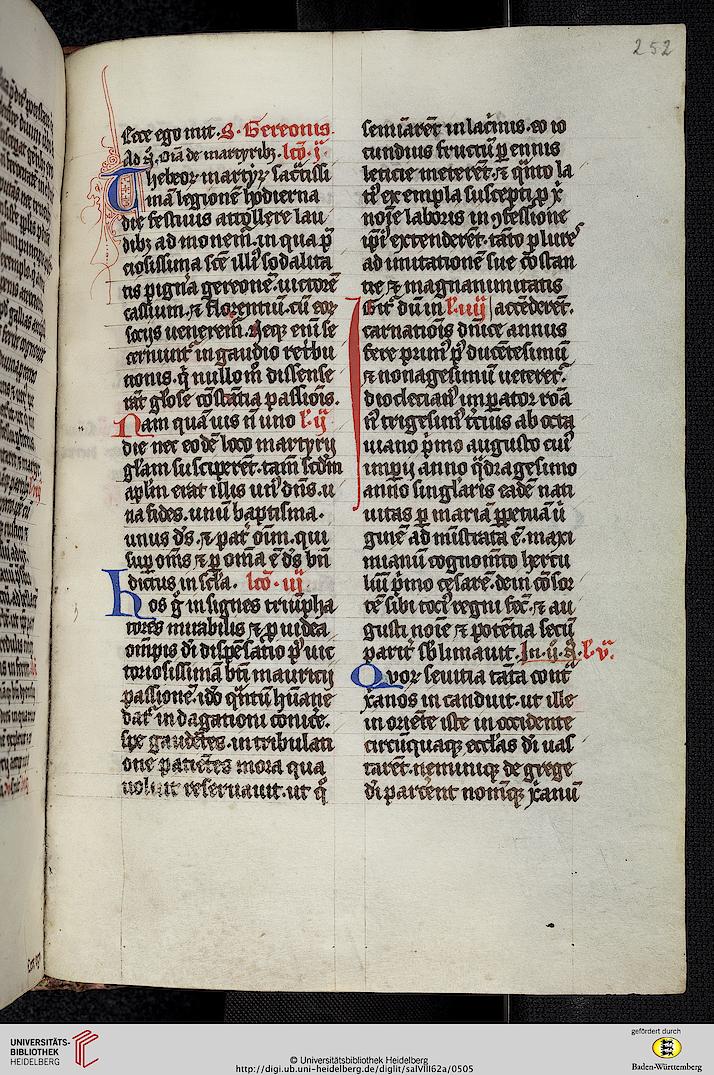 252
Ecce ego mit. S. Gereonis.
Ad ꝟ. Oīa de martyribꝫ. lcō. j.
Thebeoꝝ martyꝝ sācti ssi
ma legionē hodierna
die festiuis attollere lau
dibꝫ ad monem̄. in qua p̄
ciosissima scē illiꝰ sodalita
tis pignꝰa gereonē. uictorē
cassium. ⁊ florentiū. cū eoꝝ
socijs uenerem̄. Neqꝫ enī se
cernunt̄ in gaudio ret̄bu
tionis. q̄ nullom̄ dissense
rāt gl̓ose cōstātia passiōis.
Nam quāuis n̄ uno l. ij
die nec eodē loco martyrij
gl̓am susciperēt. tam̄ scd̓m
apl̓m erat illis un̓ dn̄s. u
na fides. unū baptisma.
unus dꝰs. ⁊ pat̓ oīm. qui
suꝑ om̄s ⁊ ꝑ omīa ē dꝰs bn̄
dictus in scl̓a. lcō. iij
Hos g̓ insignes triūpha
tores mirabilis ⁊ ꝓuidea
om̄pis di dispēsatio p̄ uic
toriosissimā bt̄i mauricij
passionē. idō qn̄tū hūane
dat̓ indagationi conice̓.
spe gaudētes. in tribulati
one patiētes mora qua
reseruauit. ut q̄
semiārēt in lac̓mis. eo io
cundius fructū ꝑennis
leticie meterēt. ⁊ qn̄to la
tiꝰ exempla suscepti ꝓ xꝰ
noīe laboris in ꝯfessione
ip̄i extenderēt. tāto plureꝰ
ad imitationē sue cōstan
tie ⁊ magnanimitatis
Igit̓ dum in l. iiij accēderēt.
carnatiōis dnīce annus
fere primꝰ p̄ ducētesimū
⁊ nonagesimū ueteret̓.
dioclecianꝰ imꝑator roā
nꝰ trigesimꝰ tc̓ius ab octa
uiano p̓mo augusto cuiꝰ
imꝑij anno q̄dragesimo
anno singl̓aris eadē nati
uitas ꝑ mariā ꝑpetuā ū
ginē ad ministrata ē. maxi
mianū cognomīto hercu
liū p̓mo cesarē. dein cōsor
tē sibi tociꝰ regni fec̓. ⁊ au
gusti noīe ⁊ potētia secū
parit̓ sb̓limauit. In. ij. ꝟ. l. v.
Quoꝝ seuitia tāta cont̓
xānos in canduit. ut ille
in oriēte iste in occidente
circūquaqꝫ eccl̓as di uas
tarēt. neminiqꝫ de grege
di parcent nomīqꝫ xānū
UNIVERSITÄTS-
BIBLIOTHEK
HEIDELBERG
© Universitätsbibliothek Heidelberg
http://digi.ub.uni-heidelberg.de/diglit/salVIII62a/0505
gefördert durch
Baden-Württemberg